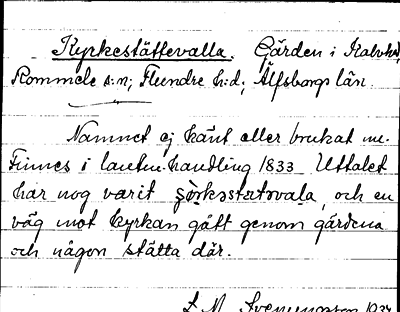 Kyrkestättevalla. Gärden i Kalvhed,
Rommele s:n; Flundre h:d; Älfsborgs län.
Namnet ej känt eller brukat nu.
Finnes i lantm. handling 1833 Uttalet
har nog varit şörkstatovala, och en
väg mot kyrkan gått genom gärdena
och någon stätta där.
L. M. Svenungsson 1934